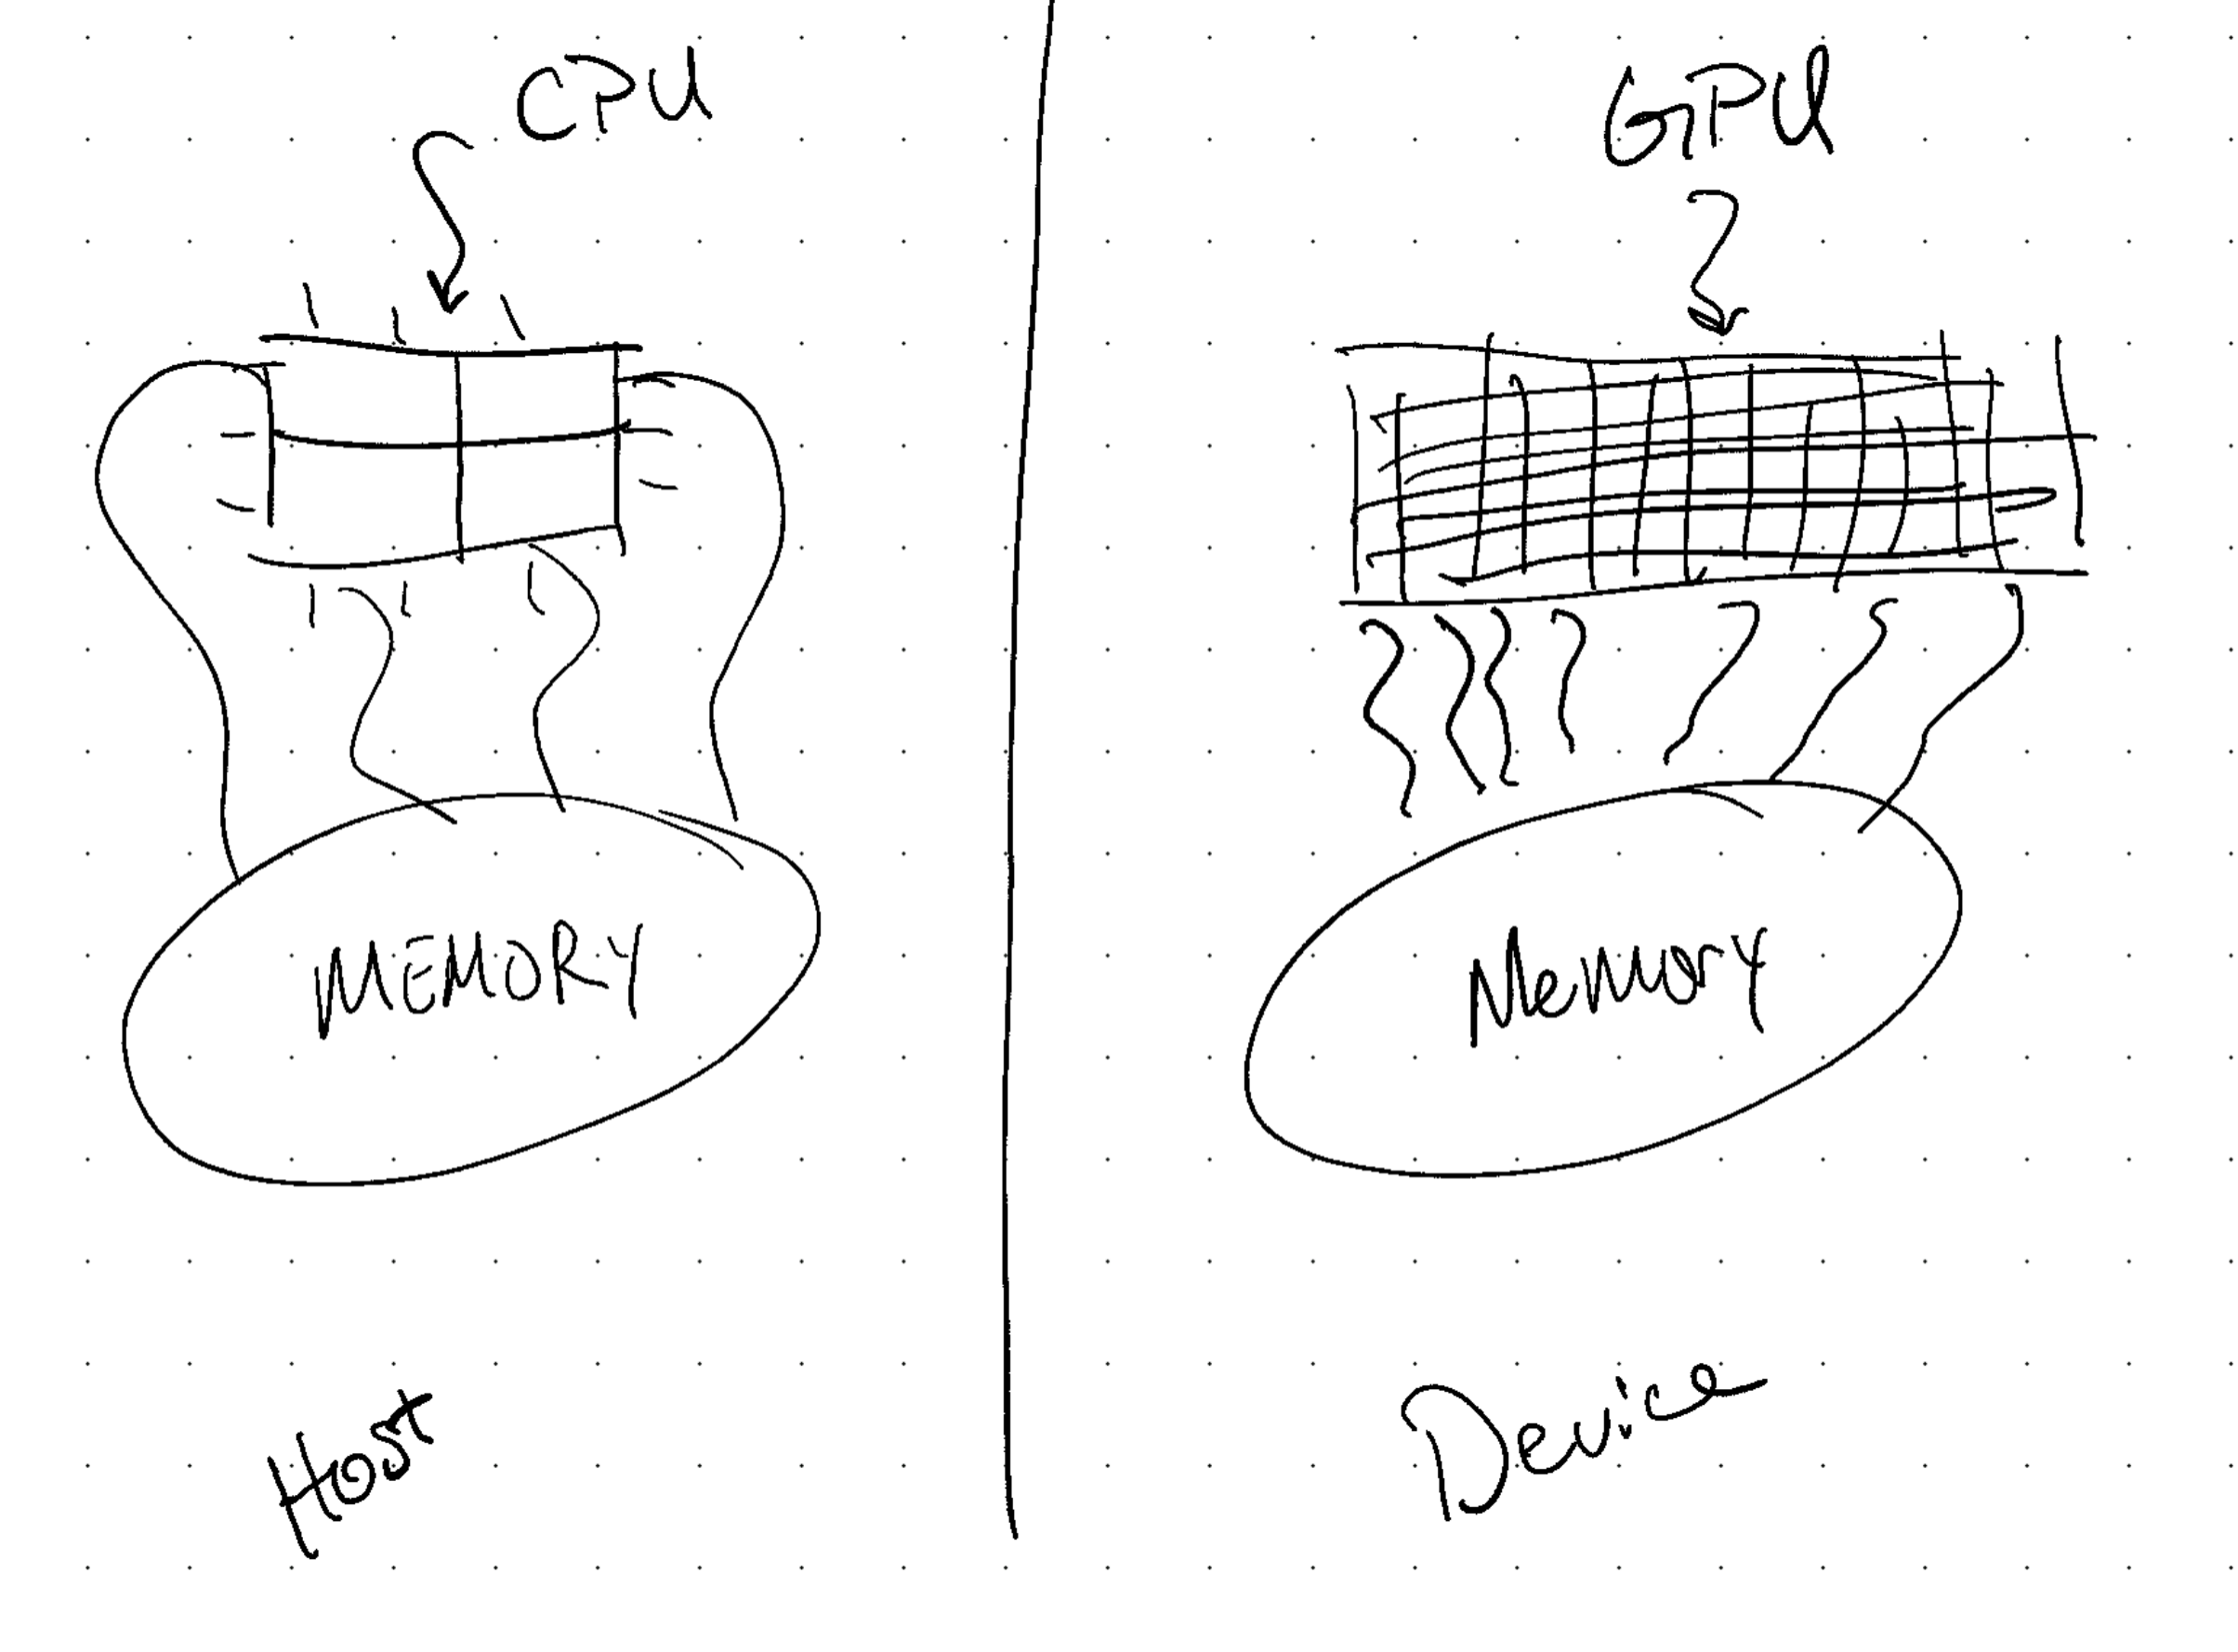 CPU
MEMORY
Host
GPU
Memory
Device